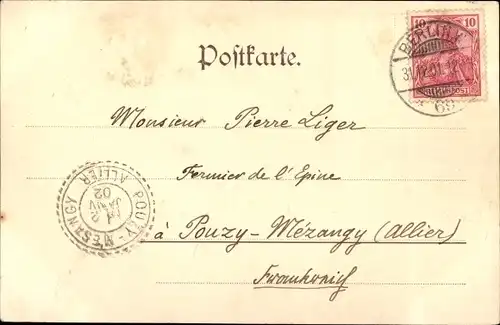 Postkarte.
10 10
BERLIN
31.12.01
69
Monsieur Pierre Liger
Fermier de l'Epine
à Pouzy-Mézangy (Allier)
Frankreich
POUZY-MESANGY
ALLIER
2
JANV
02